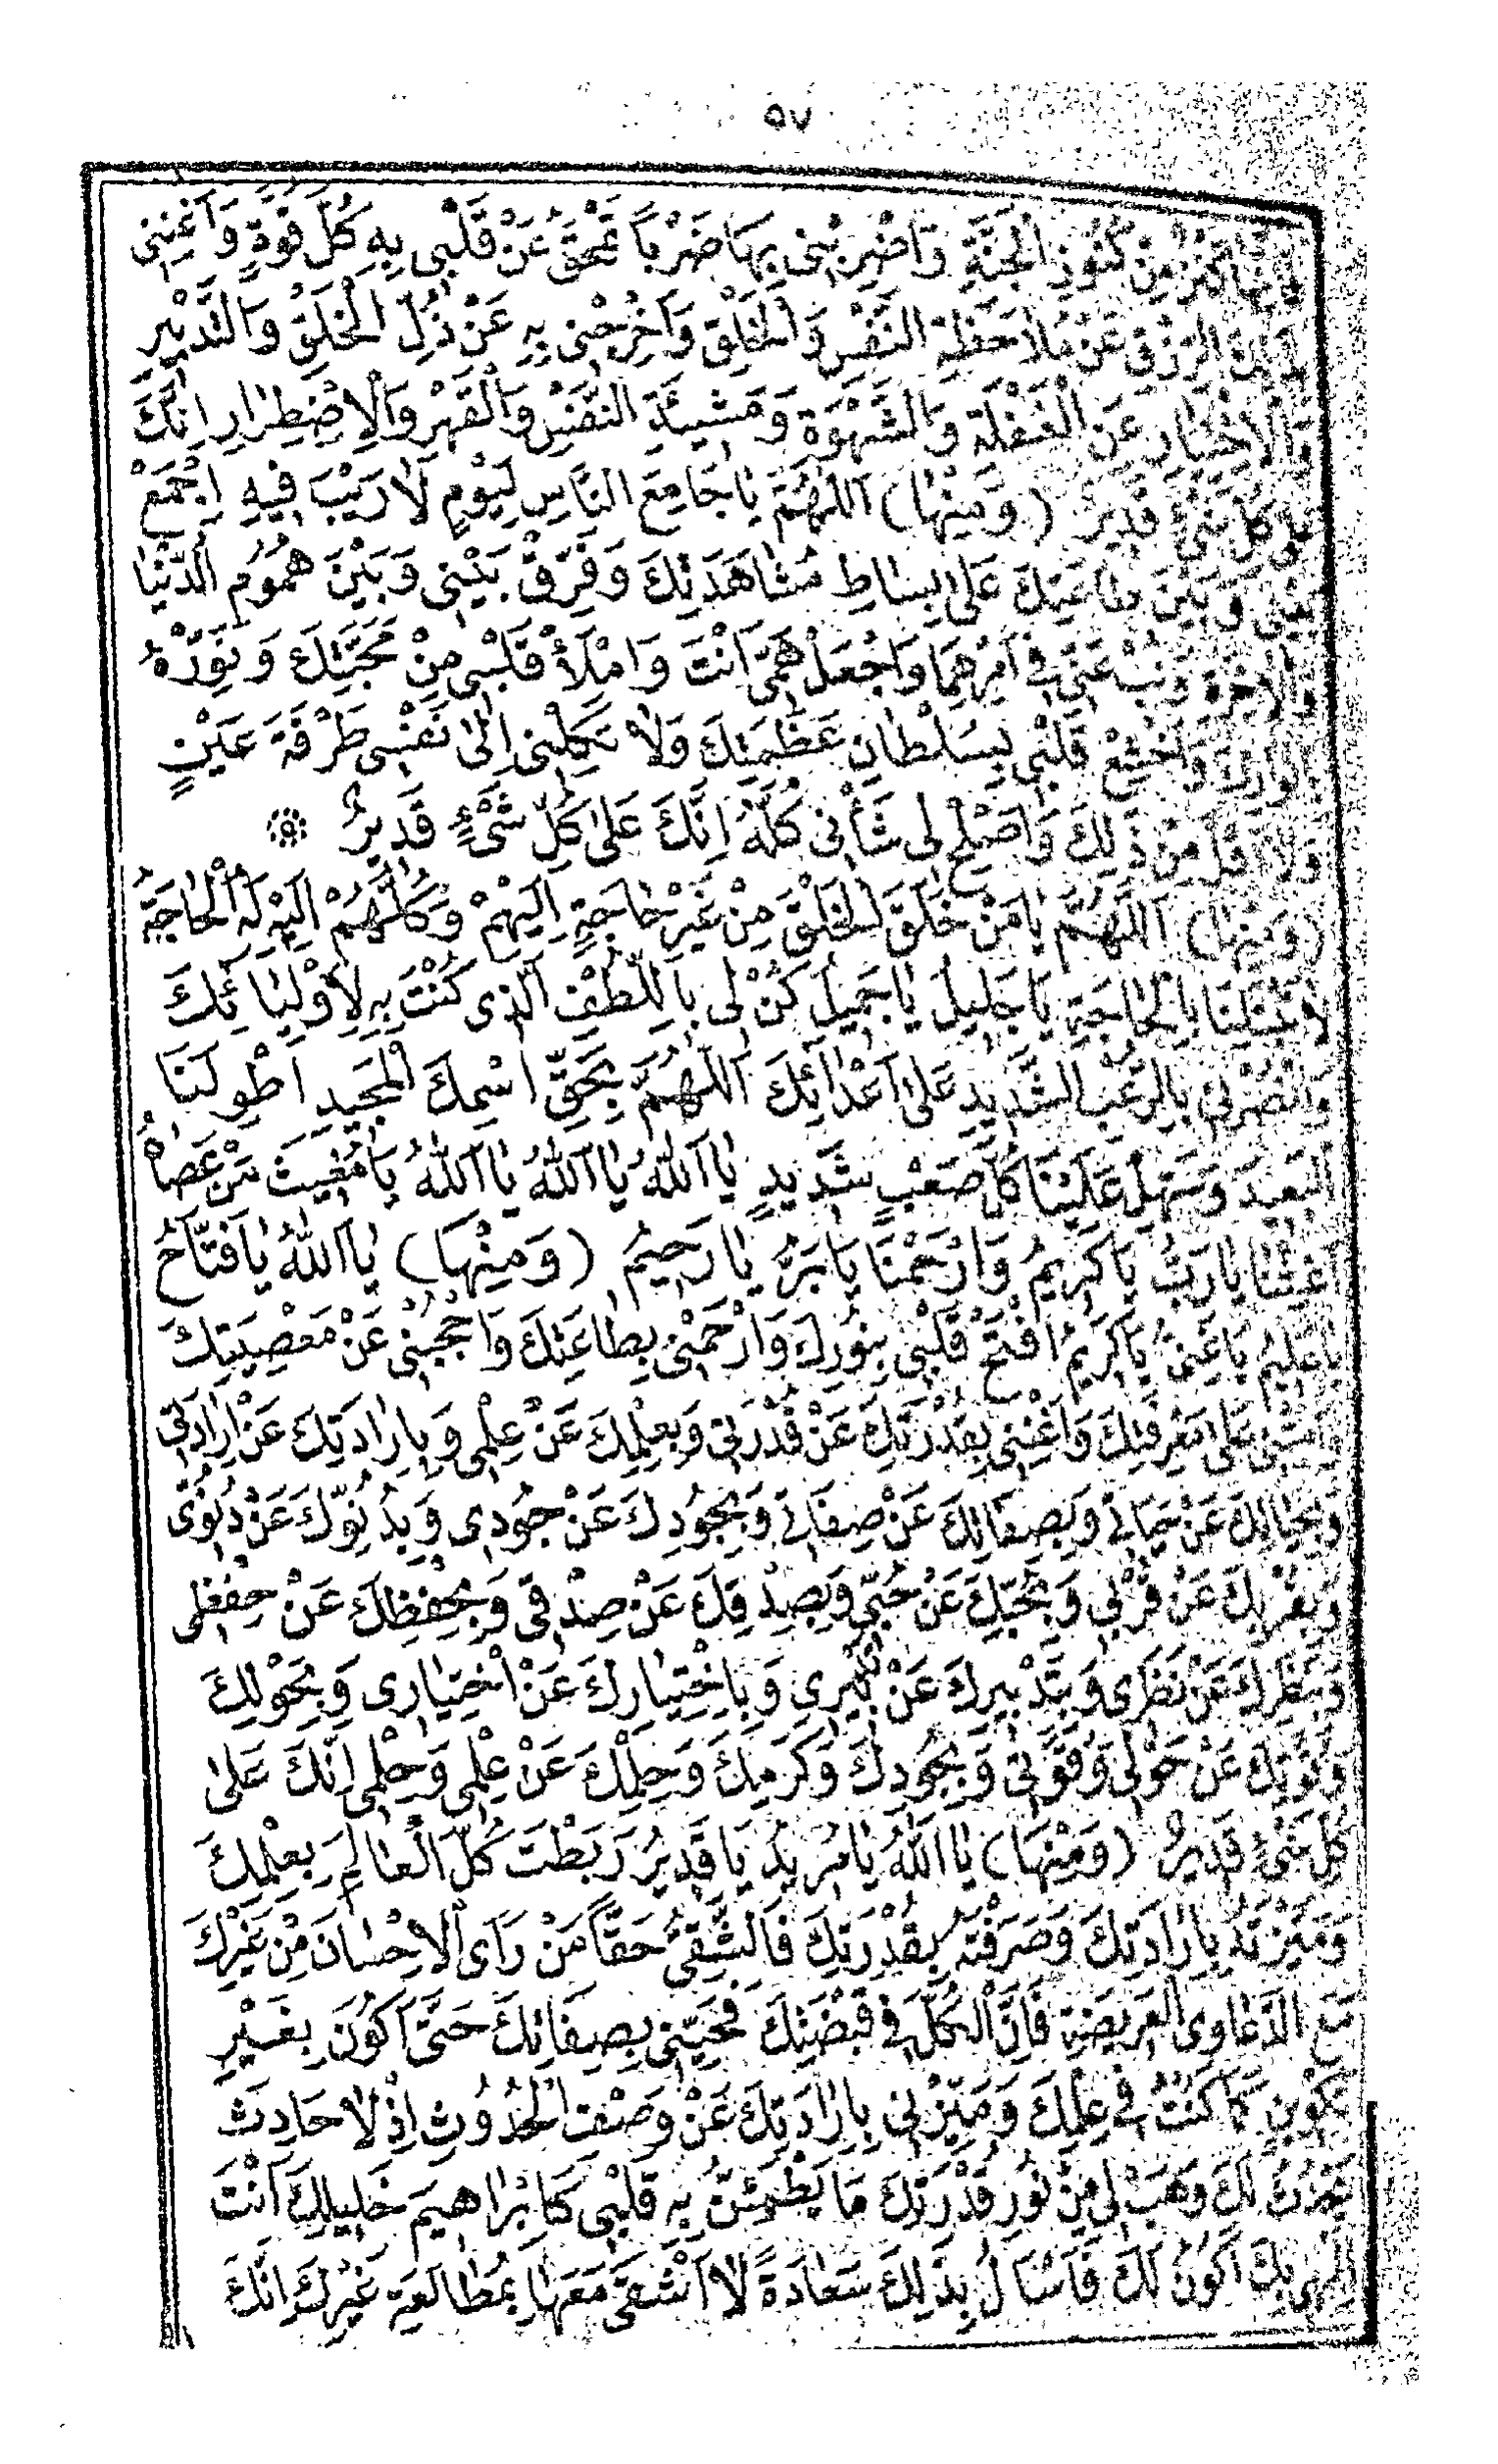 ٥٧
كَنْزٌ مِنْ كُنُوزِ الْجَنَّةِ وَاضْرِبْنِى بِهَا ضَرْباً تَمْحَقُ عَنْ قَلْبِى بِهِ كُلَّ قُوَّةٍ وَاَغْنِنِى
الرِّزْقِ عَنْ مُلَاحَظَةِ النَّفْسِ وَالْخَلْقِ وَاَخْرِجْنِى بِهِ عَنْ ذُلِّ الْخَلْقِ وَالتَّدْبِيرِ
وَالْاِخْتِيَارِ عَنِ الْغَفْلَةِ وَالشَّهْوَةِ وَمَشِيئَةِ النَّفْسِ وَالْقَهْرِ وَالْاِضْطِرَارِ اِنَّكَ
عَلَى كُلِّ شَىْءٍ قَدِيرٌ (وَمِنْهَا) اَللّٰهُمَّ يَا جَامِعَ النَّاسِ لِيَوْمٍ لَا رَيْبَ فِيهِ اِجْمَعْ
بَيْنِى وَبَيْنَ طَاعَتِكَ عَلَى بِسَاطِ مُشَاهَدَتِكَ وَفَرِّقْ بَيْنِى وَبَيْنَ هُمُومِ الدُّنْيَا
وَالْاٰخِرَةِ وَنُبْ عَنِّى فِى اَمْرِهِمَا وَاجْعَلْ هَمِّى اَنْتَ وَامْلَأْ قَلْبِى مِنْ مَحَبَّتِكَ وَنَوِّرْهُ
بِاَنْوَارِكَ وَاَخْشِعْ قَلْبِى بِسُلْطَانِ عَظَمَتِكَ وَلَا تَكِلْنِى اِلَى نَفْسِى طَرْفَةَ عَيْنٍ
وَلَا اَقَلَّ مِنْ ذٰلِكَ وَاَصْلِحْ لِى شَأْنِى كُلَّهُ اِنَّكَ عَلَى كُلِّ شَىْءٍ قَدِيرٌ
(وَمِنْهَا) اَللّٰهُمَّ يَا مَنْ خَلَقَ الْخَلْقَ مِنْ غَيْرِ حَاجَةٍ اِلَيْهِمْ وَكُلُّهُمْ اِلَيْهِ لَهُ الْحَاجَةُ
لَا بِالْحَاجَةِ يَا جَلِيلُ يَا جَمِيلُ كُنْ لِى بِاللُّطْفِ الَّذِى كُنْتَ بِهِ لِاَوْلِيَائِكَ
وَانْصُرْنِى بِالرُّعْبِ الشَّدِيدِ عَلَى اَعْدَائِكَ اَللّٰهُمَّ بِحَقِّ اسْمِكَ الْمَجِيدِ اطْوِ لَنَا
الْبَعِيدَ وَسَهِّلْ عَلَيْنَا كُلَّ صَعْبٍ شَدِيدٍ يَا اَللّٰهُ يَا اَللّٰهُ يَا اَللّٰهُ يَا مُغِيثَ مَنْ عَصَاهُ
اَغِثْنَا يَا رَبُّ يَا كَرِيمُ وَارْحَمْنَا يَا بَرُّ يَا رَحِيمُ (وَمِنْهَا) يَا اَللّٰهُ يَا فَتَّاحُ
يَا عَلِيمُ يَا غَنِىُّ يَا كَرِيمُ افْتَحْ قَلْبِى بِنُورِكَ وَارْحَمْنِى بِطَاعَتِكَ وَاحْجُبْنِى عَنْ مَعْصِيَتِكَ
عَلَى مَعْرِفَتِكَ وَاَغْنِنِى بِقُدْرَتِكَ عَنْ قُدْرَتِى وَبِعِلْمِكَ عَنْ عِلْمِى وَبِاِرَادَتِكَ عَنْ اِرَادَتِى
عَنْ وَبِصِفَاتِكَ عَنْ صِفَاتِى وَبِجُودِكَ عَنْ جُودِى وَبِدُنُوِّكَ عَنْ دُنُوِّى
وَبِقُرْبِكَ عَنْ قُرْبِى وَبِحُبِّكَ عَنْ حُبِّى وَبِصِدْقِكَ عَنْ صِدْقِى وَبِحِفْظِكَ عَنْ حِفْظِى
وَبِنَظَرِكَ عَنْ نَظَرِى وَبِتَدْبِيرِكَ عَنْ تَدْبِيرِى وَبِاخْتِيَارِكَ عَنْ اخْتِيَارِى وَبِحَوْلِكَ
وَقُوَّتِكَ عَنْ حَوْلِى وَقُوَّتِى وَبِجُودِكَ وَكَرَمِكَ وَحِلْمِكَ عَنْ عِلْمِى وَحِلْمِى اِنَّكَ عَلَى
كُلِّ شَىْءٍ قَدِيرٌ (وَمِنْهَا) يَا اَللّٰهُ يَا مُرِيدُ يَا قَدِيرُ رَبَطْتَ كُلَّ الْعَالَمِ بِعِلْمِكَ
وَمَيَّزْتَهُ بِاِرَادَتِكَ وَصَرَفْتَهُ بِقُدْرَتِكَ فَالشَّقِىُّ حَقّاً مَنْ رَاَى الْاِحْسَانَ مِنْ غَيْرِكَ
مَعَ الدَّعَاوِى الْعَرِيضَةِ فَاِنَّ الْكُلَّ فِى قَبْضَتِكَ بِصِفَاتِكَ حَتَّى اَكُونَ بِغَيْرِ
تَكْوِينٍ كَمَا كُنْتُ فِى عِلْمِكَ وَمَيِّزْنِى بِاِرَادَتِكَ عَنْ وَصْفِ الْحُدُوثِ اِذْ لَا حَادِثَ
لَكَ وَهَبْ لِى مِنْ نُورِ قُدْرَتِكَ مَا يَطْمَئِنُّ بِهِ قَلْبِى كَاِبْرَاهِيمَ خَلِيلِكَ اَنْتَ
اِلٰهِى بِكَ اَكُونُ لَكَ فَاَسْأَلُ بِذٰلِكَ سَعَادَةً لَا اَشْقَى مَعَهَا بِمُطَالَعَةِ غَيْرِكَ اِنَّكَ